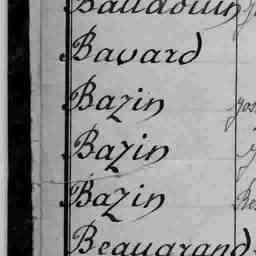 Baudouin
Bavard
Bazin
Bazin
Bazin
Beaugrand